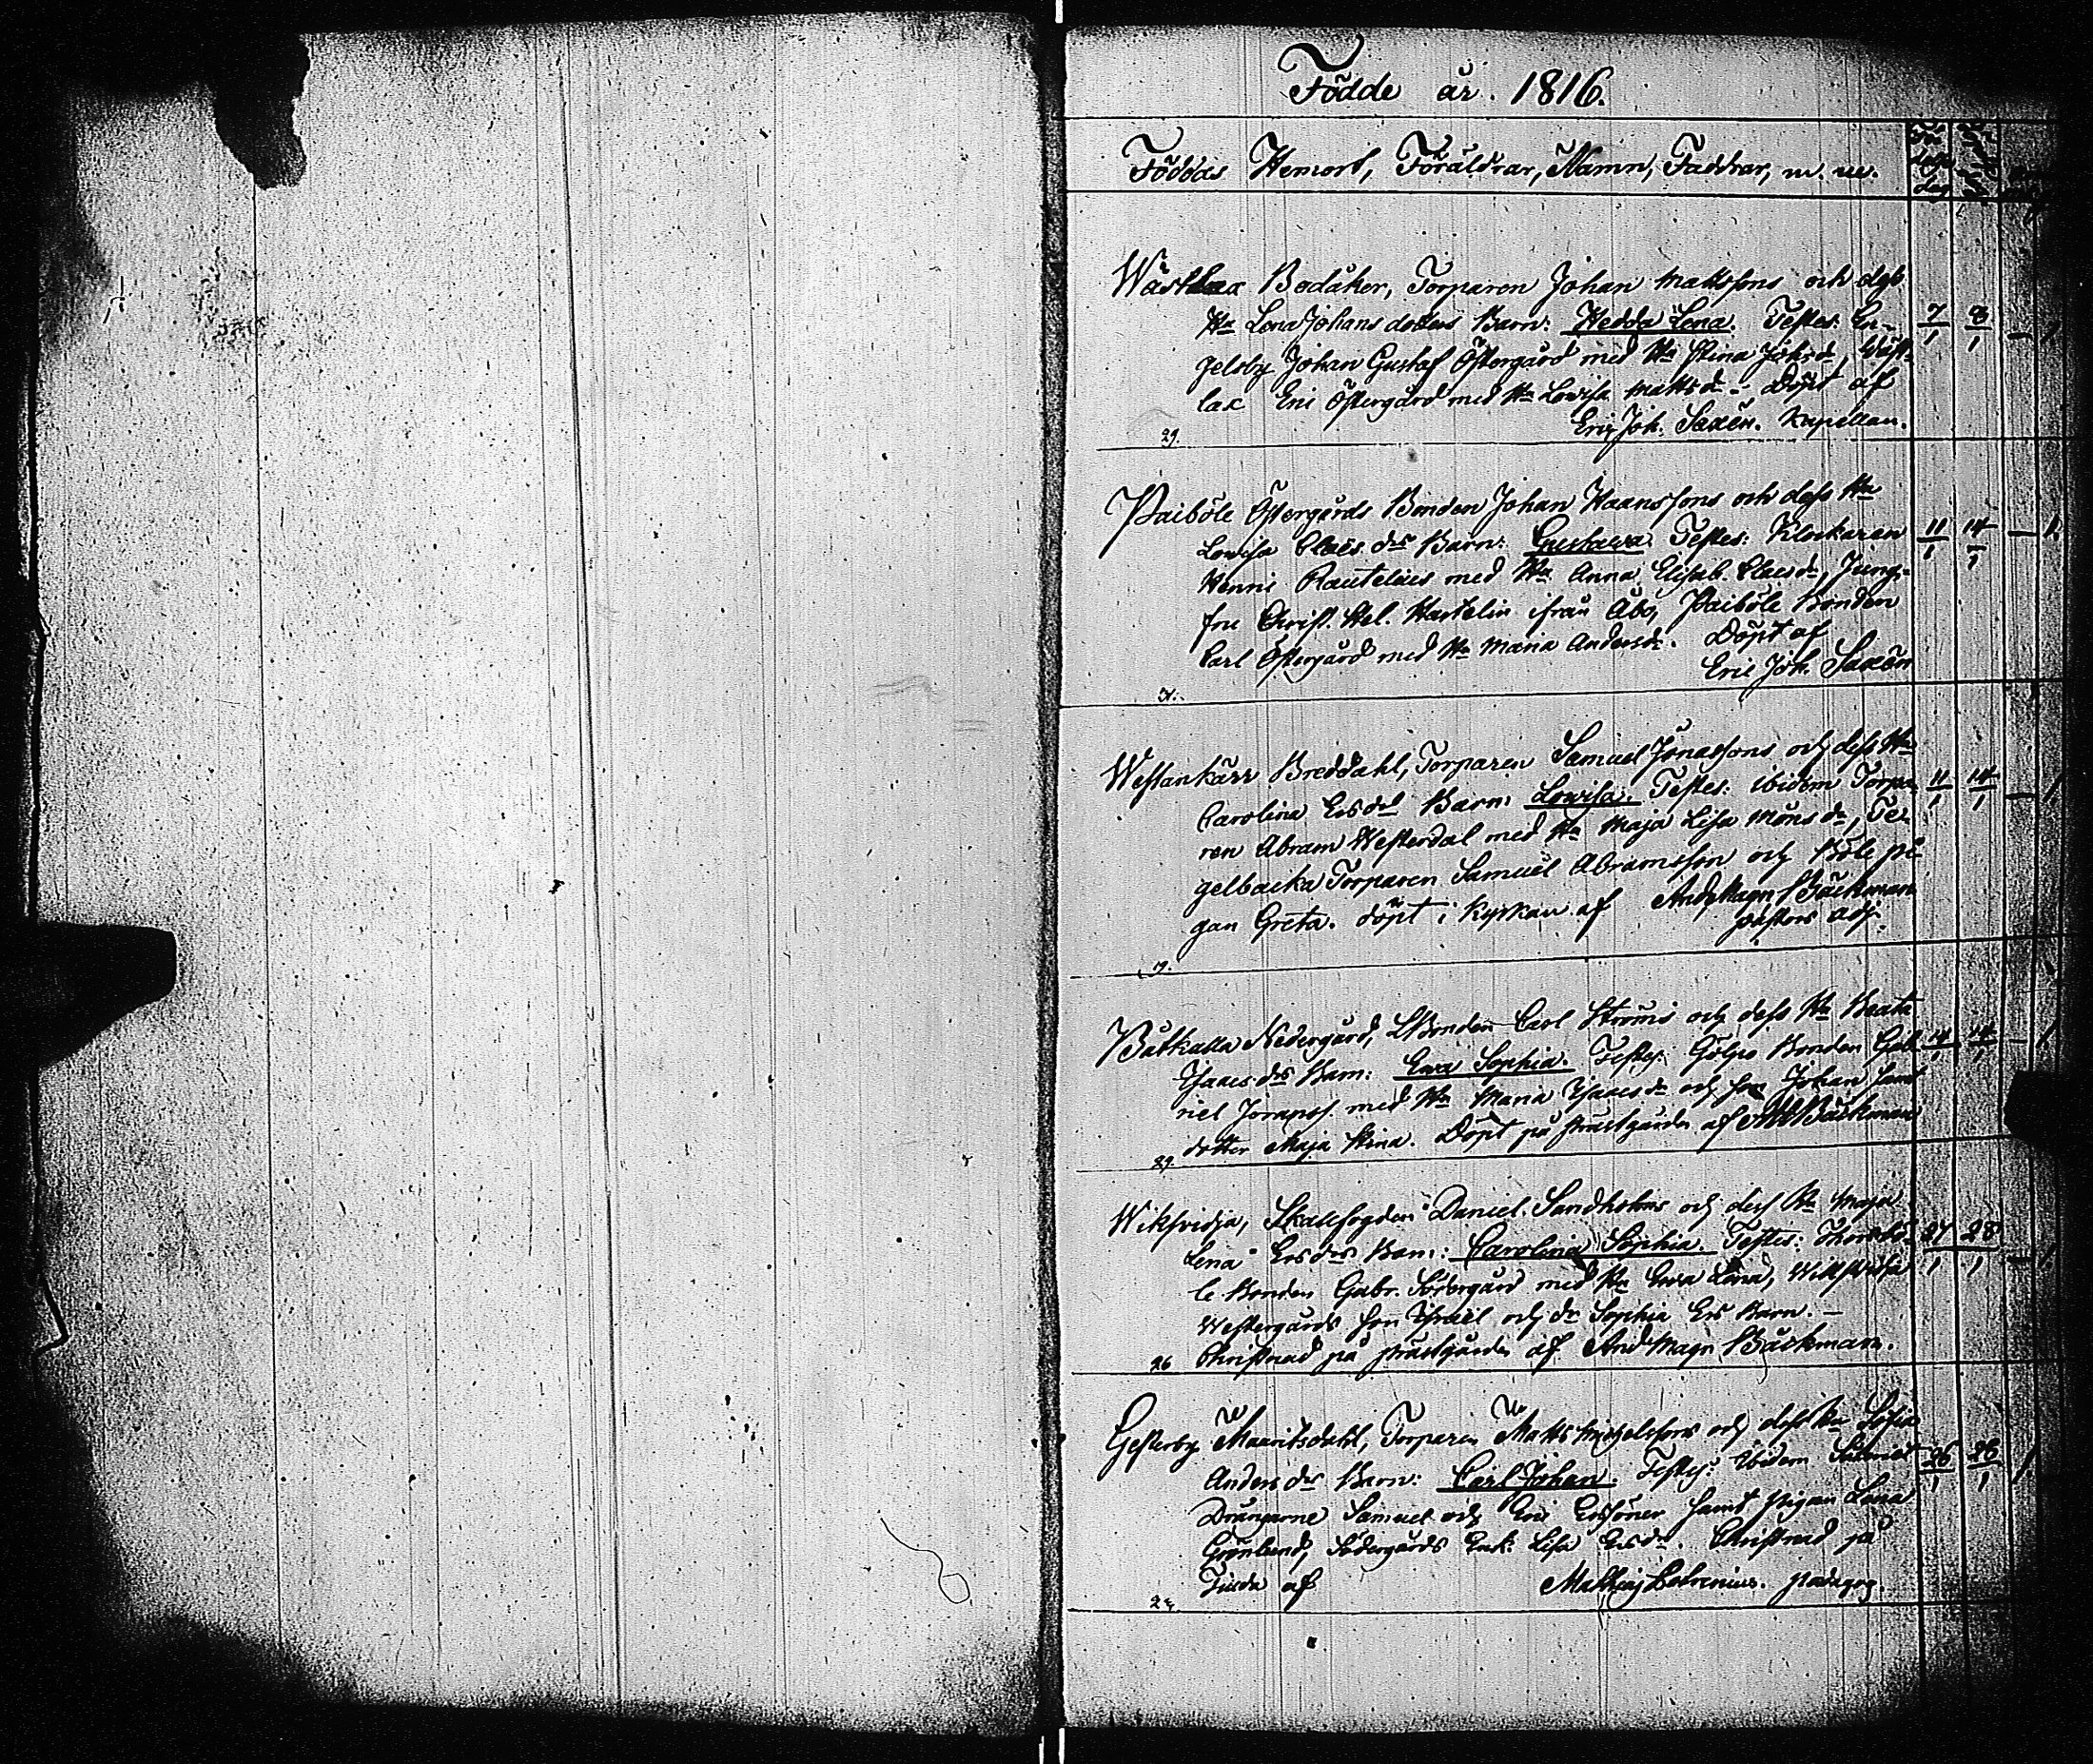 Födde år. 1816.
Föddas Hemort, Föräldrar, Namn, Faddrar, m. m.
dag
Wästlax Bodåker, Torparen Johan Mattssons och dess
Hu Lena Johans dotters Barn: Hedda Lena. Testes: En- 7/1 8/1 — 1
gelsby Johan Gustaf Östergård med Hu Stina Johsdr, Wäst-
lax Eric Östergård med Hu Lovisa Mattsdr – Döpt af
29. Eric Joh. Saxén. Kapellan.
Paiböle Östergårds Bonden Johan Haanssons och dess Hu
Lovisa Claës drs Barn: Gustawa. Testes: Klockaren 11/1 14/1 — 1
Henric Rautelius med Hu Anna Elisab. Claesdr, Jung-
fru Christ. Hel. Hartelin ifrån Åbo, Paiböle Bonden
Carl Östergård med Hu Maria Andersdr. Döpt af
Eric Joh. Saxén
Westankärr Breddahl, Torparen Samuel Jönassons och dess Hu
Carolina Ersdrs Barn: Lovisa. Testes: ibidem Torpa- 11/1 14/1 — 1
ren Abram Westerdal med Hu Maja Lisa Månsdr, Te-
gelbacka Torparen Samuel Abramsson och Böle pi-
gan Greta. döpt i Kyrkan af And. Magn. Bäckman
pastors adj.
19.
Båtkulla Nedergård, Bonden Carl Ströms och dess Hu Beata
Isaacs drs Barn: Ewa Sophia. Testes: Gölpo Bonden Gab- 14/1 14/1 — 1
riel Joranss. med Hu Maria Isaacsdr och son Johan samt
dotter Maja Stina. Döpt på prästgården af AM Bäckman
29.
Wiksvidja, Skallfogden Daniel Sandholms och dess Hu Maja
Lena Ersdrs Barn: Carolina Sophia. Testes: 27/1 28/1 — 1
le Bonden Gabr. Södergård med Hu Ewa Lena, Wikswidja
Westergårds son Israël och dr Sophia Ers Barn. —
26 Christnad på prästgården af And Magn Bäckman.
Gesterby Mauritsdahl, Torparen Matts Michelssons och dess Hu Sofia
Anders drs Barn: Carl Johan. Testes: Ibidem 26/1 28/1 1
Drängarne Samuel och Eric Erssöner samt pigan Lena
Grönlund, Södergårds Enk: Lisa Ersdr. Christnad på
af Mathias Bohrenius. pædagog.